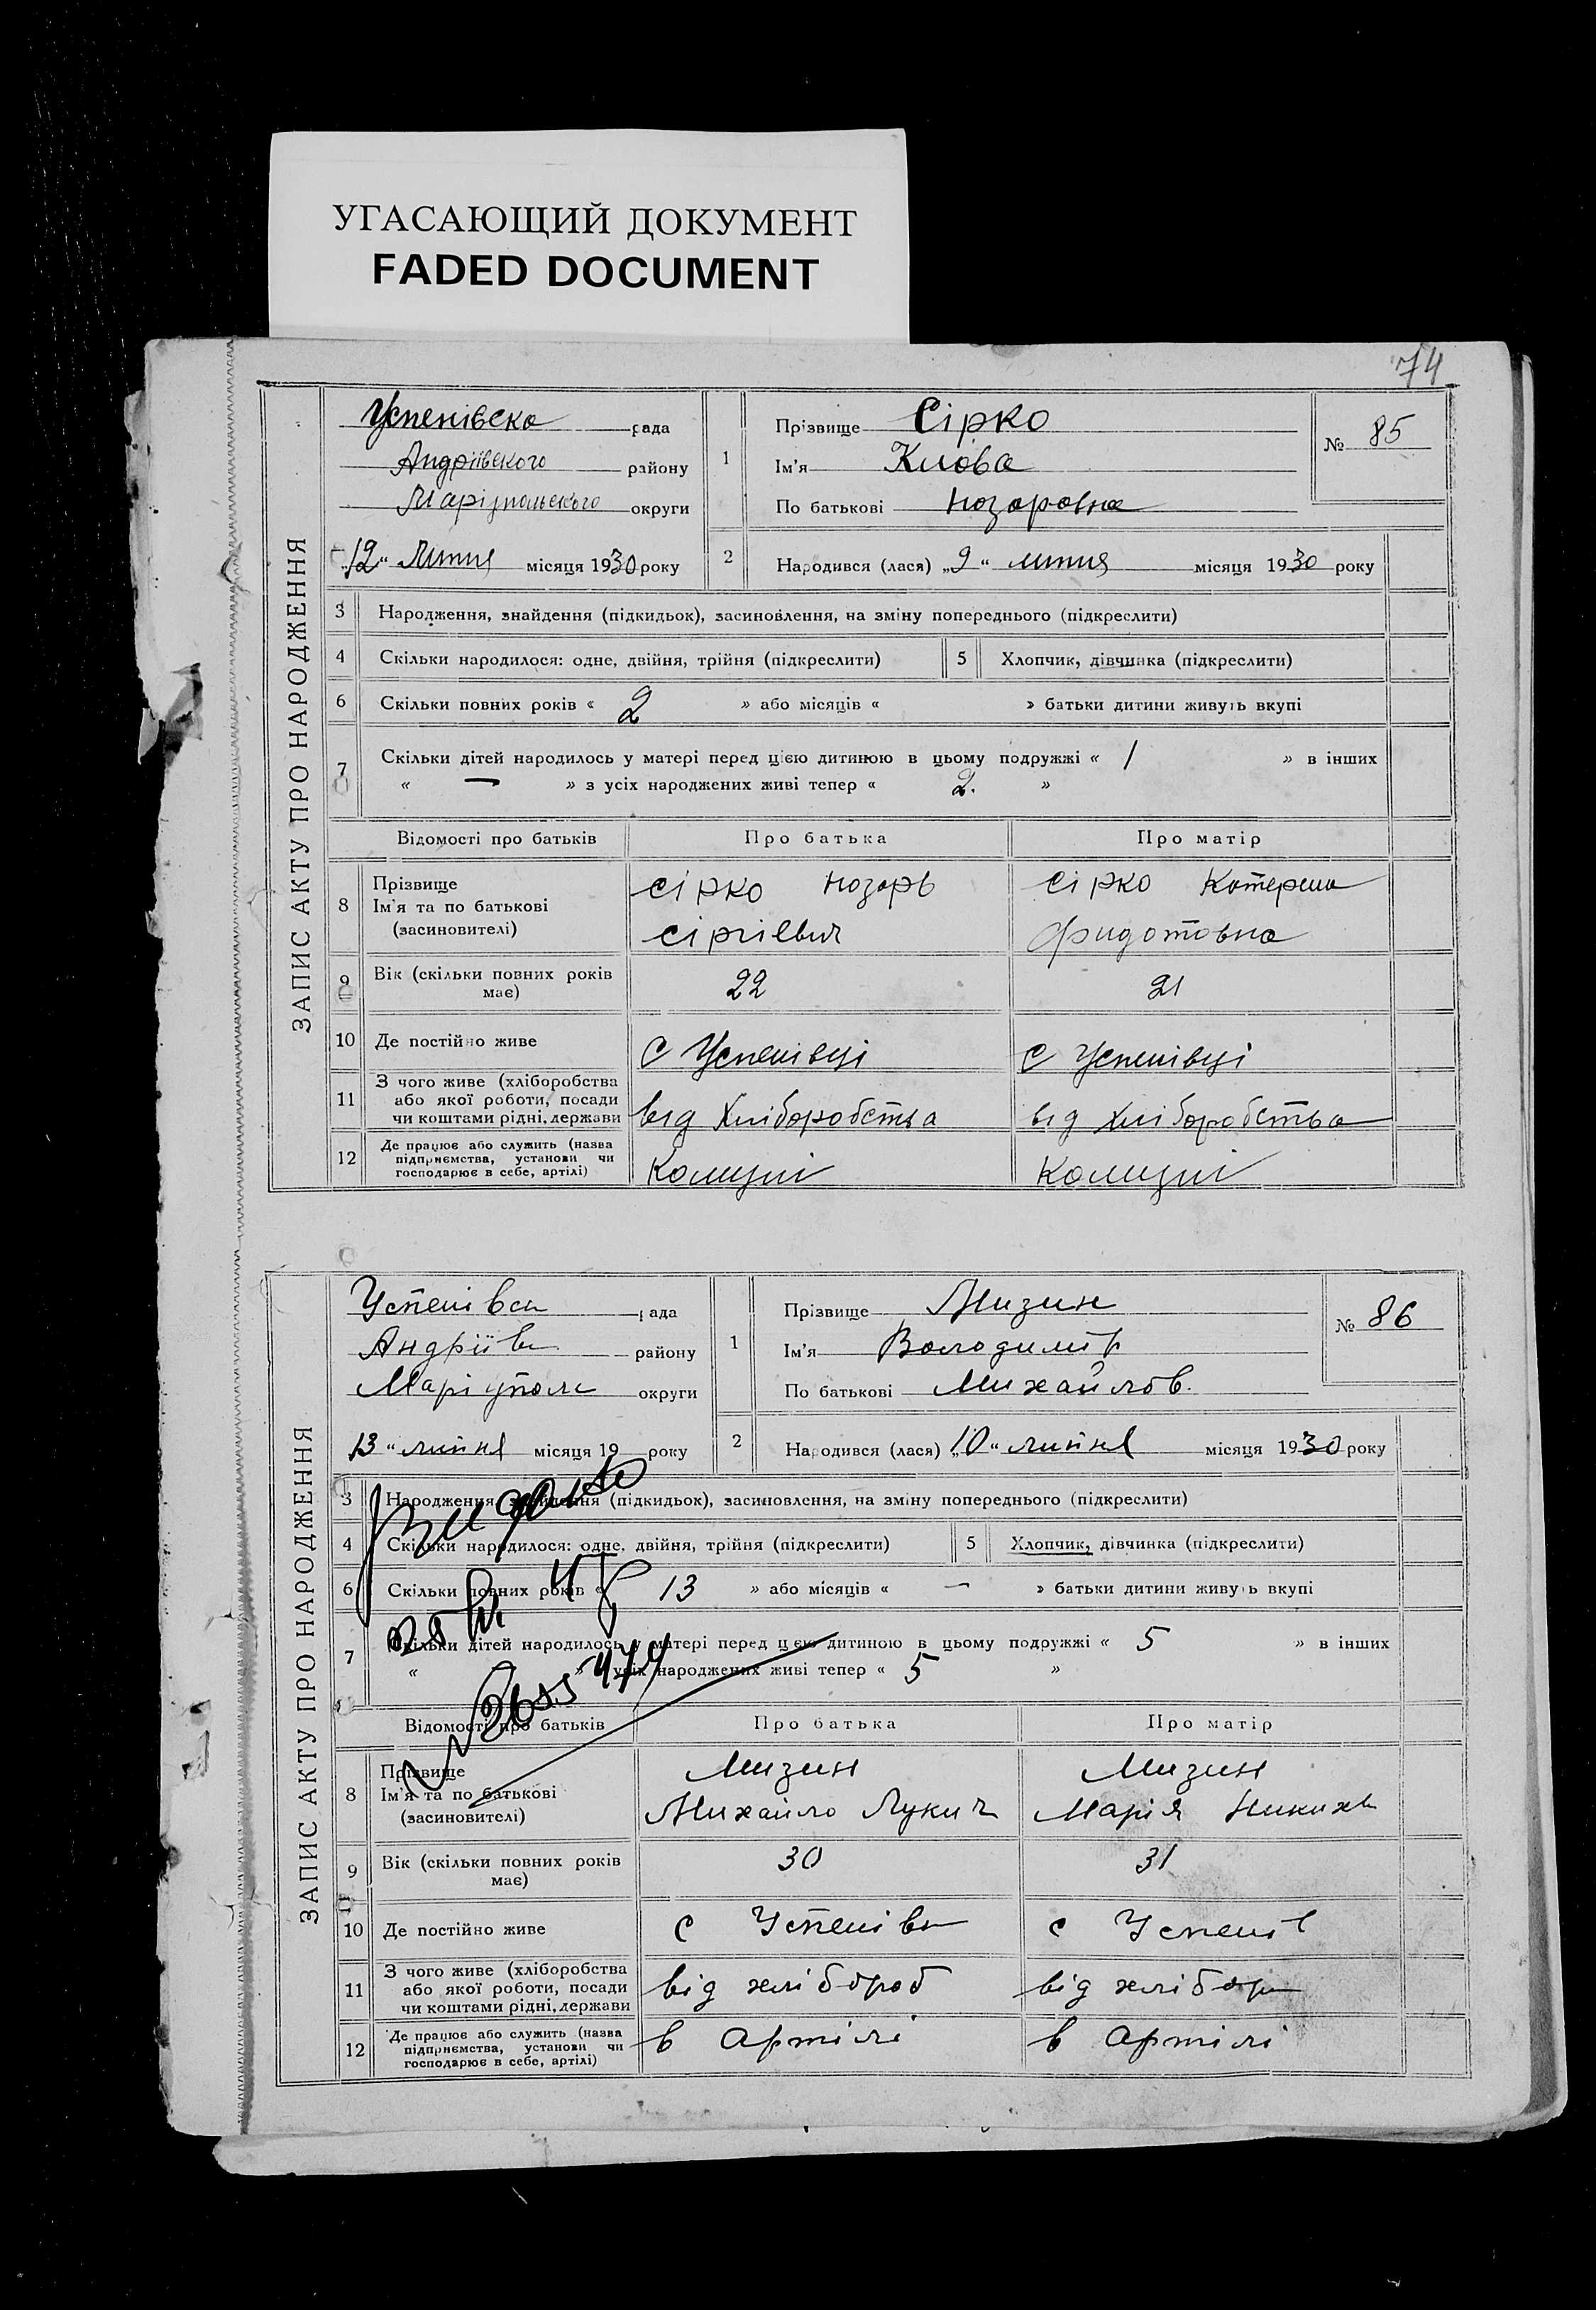 УГАСАЮЩИЙ ДОКУМЕНТ
FADED DOCUMENT
74
ЗАПИС АКТУ ПРО НАРОДЖЕННЯ
Успенівска рада
Андріївского району
Маріупольского округи
„12“ Липня місяця 1930 року
1
Прізвище Сірко
Ім'я Клова
По батькові Нозаровна
№ 85
2
Народився (лася) „9“ липня місяця 1930 року
3 Народження, знайдення (підкидьок), засиновлення, на зміну попереднього (підкреслити)
4 Скільки народилося: одне, двійня, трійня (підкреслити)
5 Хлопчик, дівчинка (підкреслити)
6 Скільки повних років « 2 » або місяців « » батьки дитини живуть вкупі
7 Скільки дітей народилось у матері перед цією дитиною в цьому подружжі « 1 » в інших
« — » з усіх народжених живі тепер « 2. »
Відомості про батьків Про батька Про матір
8 Прізвище
Ім'я та по батькові
(засиновителі)
Сірко Нозарь
Сіргієвич
Сірко Катерина
Фидотовна
9 Вік (скільки повних років
має)
22
21
10 Де постійно живе
С Успенівці
С Успенівці
11 З чого живе (хліборобства
або якої роботи, посади
чи коштами рідні, держави
від Хліборобства
від Хліборобства
12 Де працює або служить (назва
підприємства, установи чи
господарює в себе, артілі)
Комуні
Комуні
ЗАПИС АКТУ ПРО НАРОДЖЕННЯ
Успенівск рада
Андріїв району
Маріуполь округи
13 “ липня місяця 19 року
1
Прізвище Мизин
Ім'я Володимір
По батькові Михайлов.
№ 86
2
Народився (лася) „10“ липня місяця 1930 року
3 Народження, знайдення (підкидьок), засиновлення, на зміну попереднього (підкреслити)
4 Скільки народилося: одне, двійня, трійня (підкреслити)
5 Хлопчик, дівчинка (підкреслити)
6 Скільки повних років « 13 » або місяців « — » батьки дитини живуть вкупі
7 Скільки дітей народилось у матері перед цією дитиною в цьому подружжі « 5 » в інших
« » з усіх народжених живі тепер « 5 »
Відомості про батьків Про батька Про матір
8 Прізвище
Ім'я та по батькові
(засиновителі)
Мизин
Михайло Лукич
Мизин
Марія Никих
9 Вік (скільки повних років
має)
30
31
10 Де постійно живе
с Успенівк
с Успенів
11 З чого живе (хліборобства
або якої роботи, посади
чи коштами рідні, держави
від хлібороб
від хлібор
12 Де працює або служить (назва
підприємства, установи чи
господарює в себе, артілі)
в Артілі
в Артілі